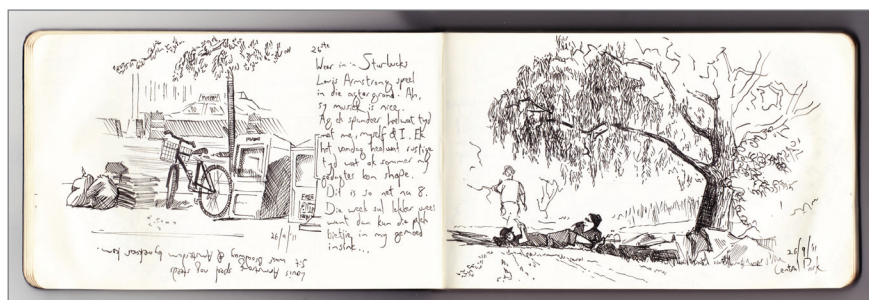 26ste
Weer in 'n Starbucks
Louis Armstrong speel
in die agtergrond. Ah,
sy musiek is nice.
Ag ek spandeer heelwat tyd
met me, myself & I. Ek
het vandag heelwat rustige
tyd wat ek sommer my
gedagtes kon shape.
Dit is so net na 8.
Die week sal lekker wees
want dan kan die plek
bietjie in my gemoed
insink...
26/9/11
Louis Armstrong speel nog steeds
57 waar Broadway & Amsterdam bymekaar kom.
26/9/11
Central Park